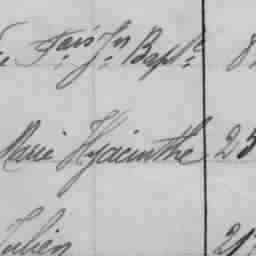 Fçois Jn Bapte 8
Marie Hyacinthe 25
Julien 21